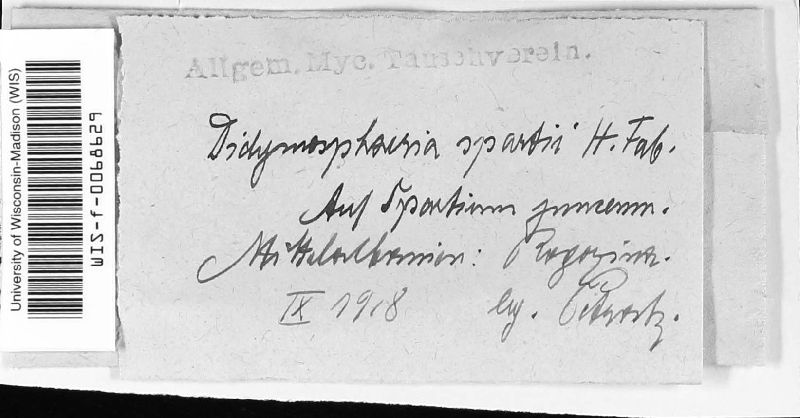 Allgem. Myc. Tauschverein.
Didymosphaeria spartii H. Fab.
Auf Spartium junceum.
Mittelalbanien: Rogozina.
IX 1918 leg. Petrak.
University of Wisconsin-Madison (WIS)
WIS-f-0068629